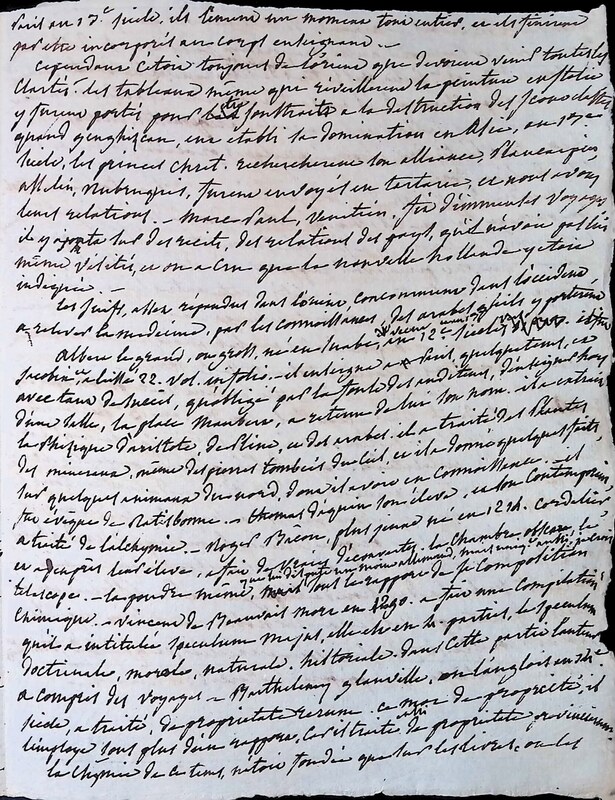 Paris au 13e siecle. ils tinrent un moment tout entier, et ils finirent
par etre incorporés au corps enseignant. -
Cependant c'etoit toujours de l'orient que devoient venir toutes les
clartés. les tableaux même qui reveillerent la peinture en italie
y furent portés pour les soustraire a la destruction des iconoclastes
quand genghizcan, eut établi sa domination en asie, au 13eme
siecle, les princes chret. rechercherent son alliance, Plancarpin,
asselin, Rubruquis, furent envoyés en tartarie, et nous avons
leurs relations. - Marc Paul, venitien, fit d'immenses voyages
il y ajouta sur des recits, des relations des pays, qu'il n'avoit pas lui
même visités, et on a cru que la nouvelle hollande y etoit
indiquée. -
les juifs, assez répandus dans l'orient concoururent dans l'occident
a relever la medecine, par les connoissances des arabes qu'ils y porterent
Albert le grand, ou grott, né en Suabe, au 12e siecle
jacobin, a laissé 22. vol. in folio - il enseigna a Paris quelque tems, et
avec tant de succès, qu'obligé par la foule des auditeurs, d'enseigner hors
d'une salle, la place Maubert, a retenu de lui son nom. il a extrait
la Phisique d'aristote, de Pline, et des arabes. il a traité des plantes
des mineraux, même des pierres tombées du ciel et il a donné quelques faits
sur quelques animaux du nord, dont il avoit eu connoissance. - il
fut évêque de Ratisbonne. - thomas d'aquin son éleve, et son contemporain,
a traité de l'alchymie. - Roger Bacon, plus jeune né en 1214. cordelier
a fait de vraies découvertes. la chambre obscure, le
telescope. - la poudre même, sous le rapport de sa composition
chimique. - vincent de Beauvais mort en a fait une compilation
qu'il a intitulée speculum majus, elle est en 4. parties, le speculum
doctrinale, morale, naturale, historiale. dans cette partie l'auteur
a compris des voyages - Barthelemy glanville, en anglois au 14e
siecle, a traité, de proprietate rerum. ce mot de propriété, il
l'employe sous plus d'un rapport, car il traite de proprietate provinciarum
la chymie de ce tems, n'etoit fondée que sur les livres, ou les